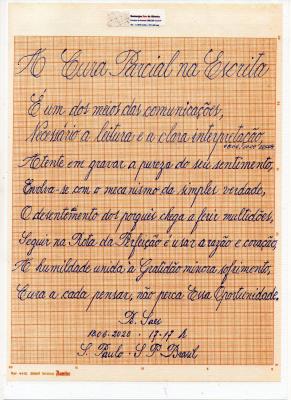 A Cura Parcial na Escrita
É um dos meios das comunicações,
Necessário a leitura e a clara interpretação,
Atente em gravar a pureza do seu sentimento,
Envolva-se com o mecanismo da simples verdade,
O desentendimento dos porquês chega a ferir multidões.
Seguir na Rota da Perfeição é usar a razão e coração,
A humildade unida à Gratidão minora sofrimento,
Cura a cada pensar, não perca Essa Oportunidade.
D. Saes
18.06.2020 - 17:17 h
S. Paulo - S. P. Brasil